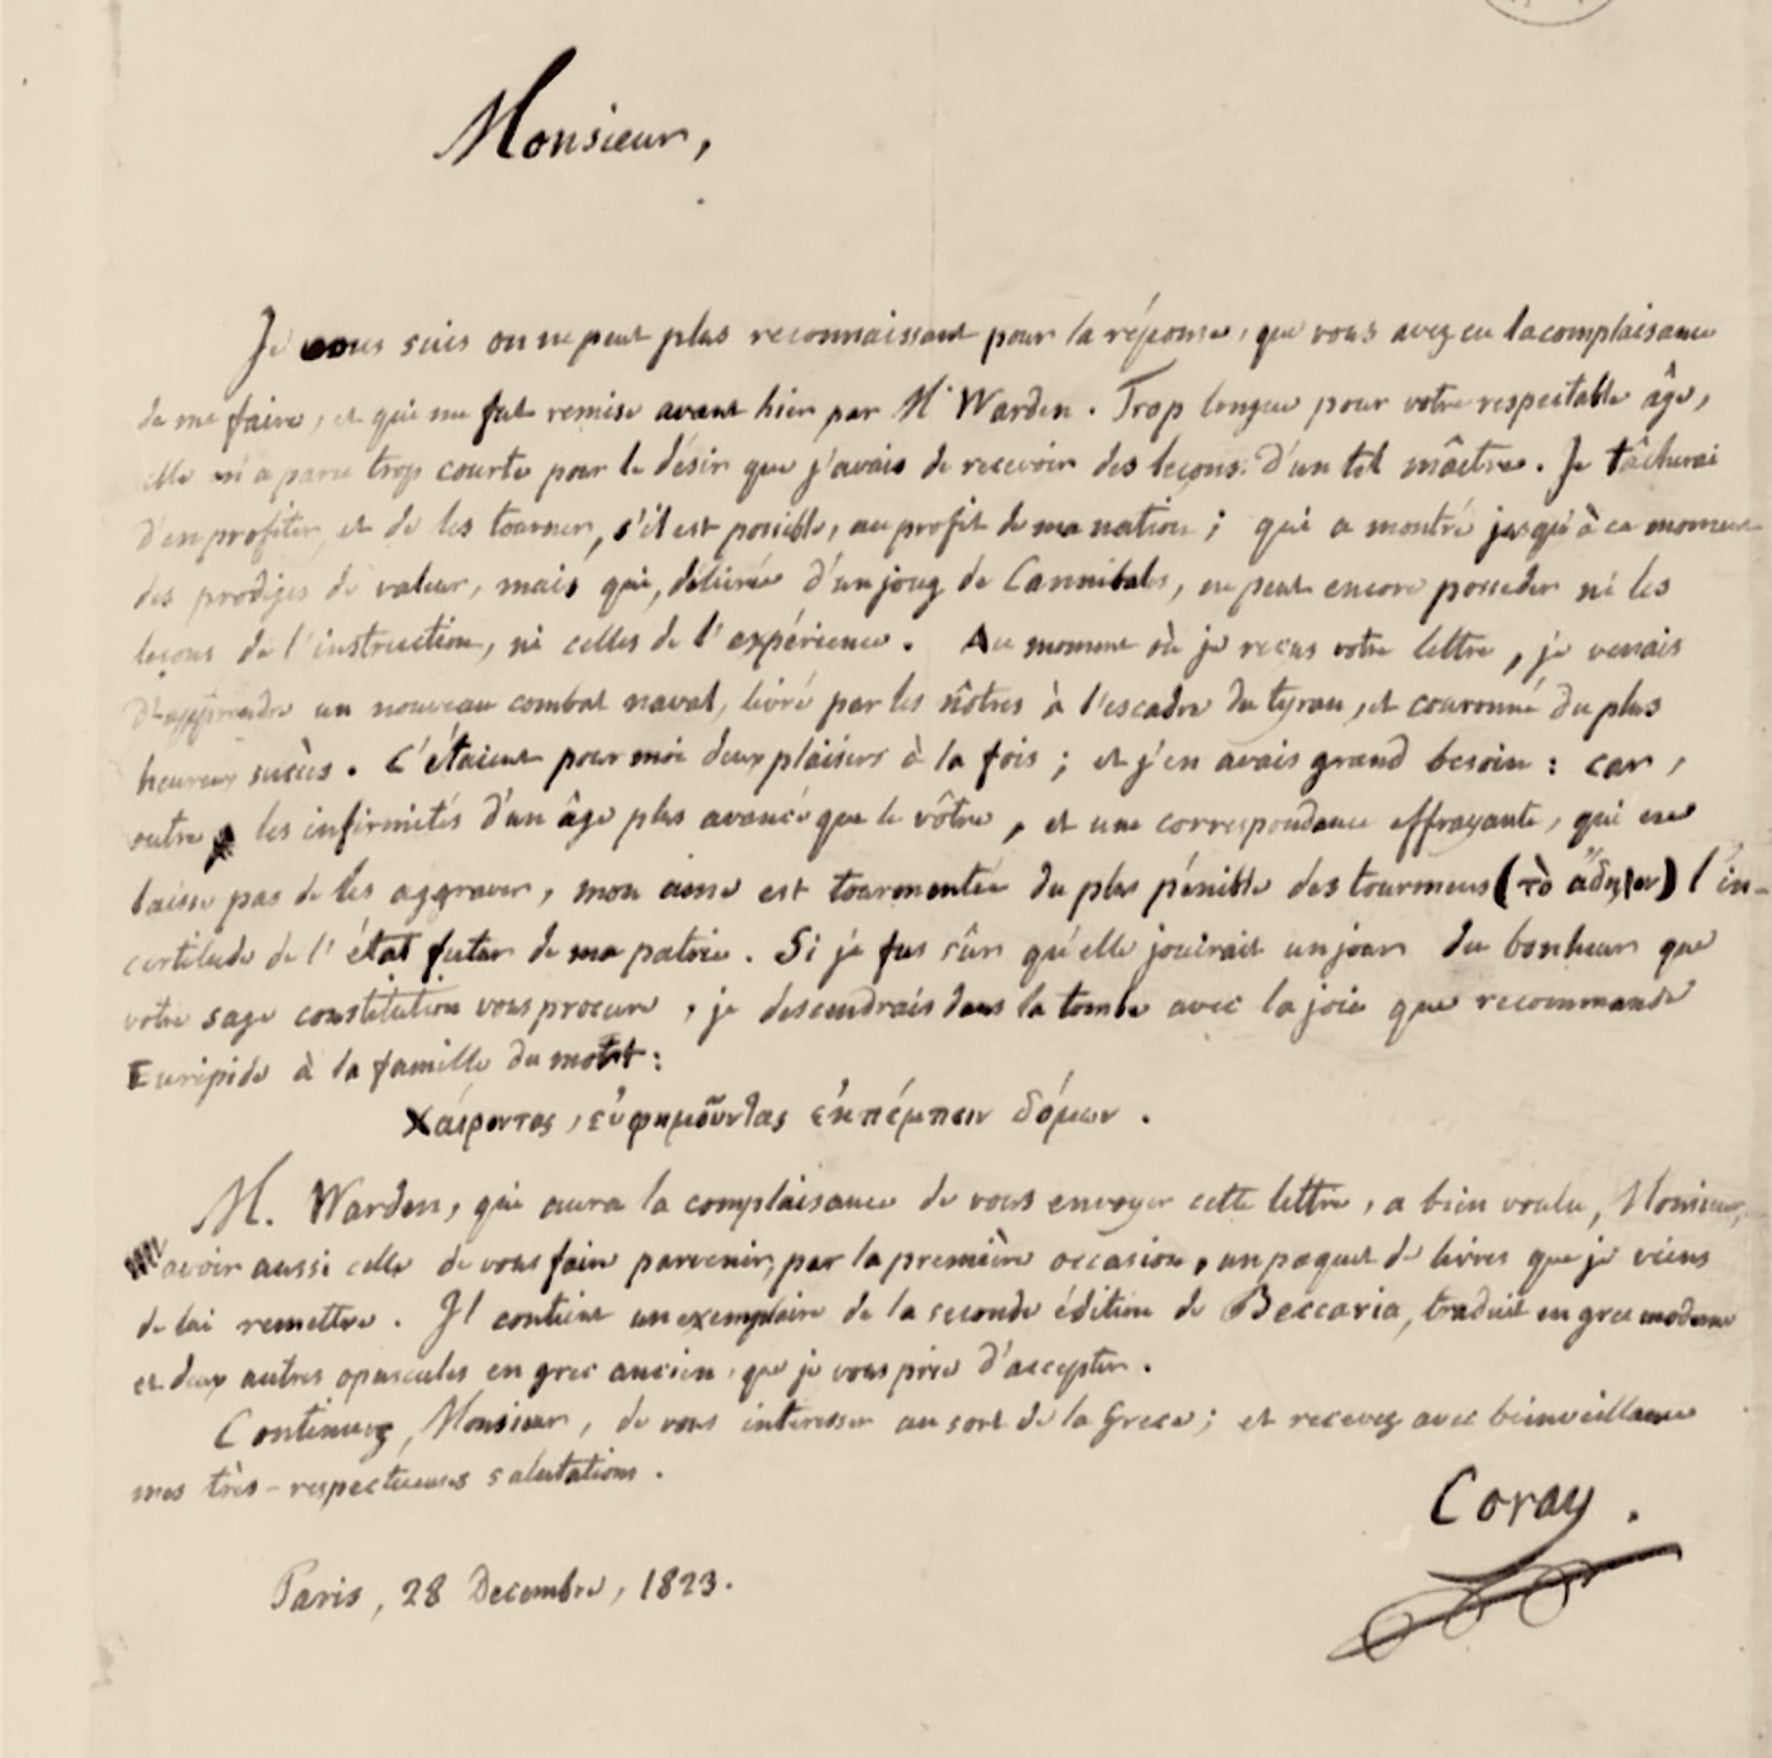 Monsieur,
Je vous suis on ne peut plus reconnaissant pour la réponse, que vous avez eu la complaisance
de me faire, et qui me fut remise avant hier par Mr Warden. Trop longue pour votre respectable âge,
elle m'a paru trop courte pour le désir que j'avais de recevoir des leçons d'un tel maître. Je tâcherai
d'en profiter, et de les tourner, s'il est possible, au profit de ma nation; qui a montré jusqu'à ce moment
des prodiges de valeur, mais qui, délivrée d'un joug de Cannibales, ne peut encore posseder ni les
leçons de l'instruction, ni celles de l'expérience. Au moment où je reçus votre lettre, je venais
d'apprendre un nouveau combat naval, livré par les nôtres à l'escadre du tyran, et couronné du plus
heureux succès. C'étaient pour moi deux plaisirs à la fois; et j'en avais grand besoin: car,
outre les infirmités d'un âge plus avancé que le vôtre, et une correspondance effrayante, qui ne
laisse pas de les aggraver, mon ame est tourmentée du plus pénible des tourmens (τὸ ἄδηλον) l'in-
certitude de l'état futur de ma patrie. Si je fus sûr qu'elle jouirait un jour du bonheur que
votre sage constitution vous procure, je descendrais dans la tombe avec la joie que recommande
Euripide à la famille du mort:
Χαίροντας, εὐφημοῦντας ἐκπέμπειν δόμων.
M. Warden, qui aura la complaisance de vous envoyer cette lettre, a bien voulu, Monsieur,
avoir aussi celle de vous faire parvenir, par la première occasion, un paquet de livres que je viens
de lui remettre. Il contient un exemplaire de la seconde édition de Beccaria, traduit en grec moderne
et deux autres opuscules en grec ancien, que je vous prie d'accepter.
Continuez, Monsieur, de vous interesser au sort de la Grece; et recevez avec bienveillance
mes très-respectueuses salutations.
Coray.
Paris, 28 Decembre, 1823.